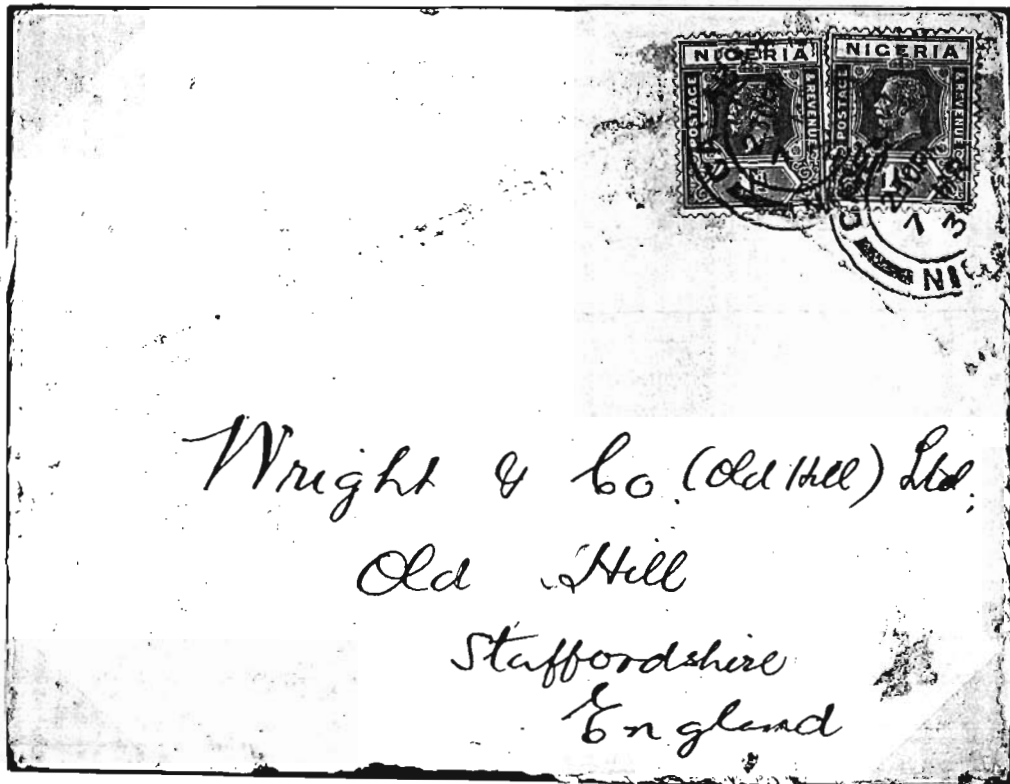 NIGERIA NIGERIA
POSTAGE & REVENUE POSTAGE & REVENUE
1
NIG
Wright & Co. (Old Hill) Ltd.
Old Hill
Staffordshire
England